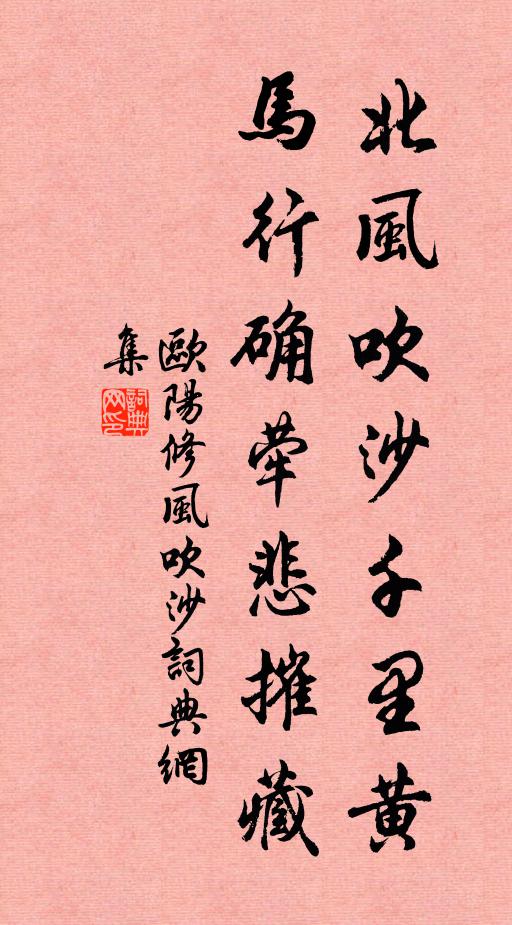 北風吹沙千里黃
馬行确犖悲摧藏
歐陽修風吹沙詞典網
集
詞典網印